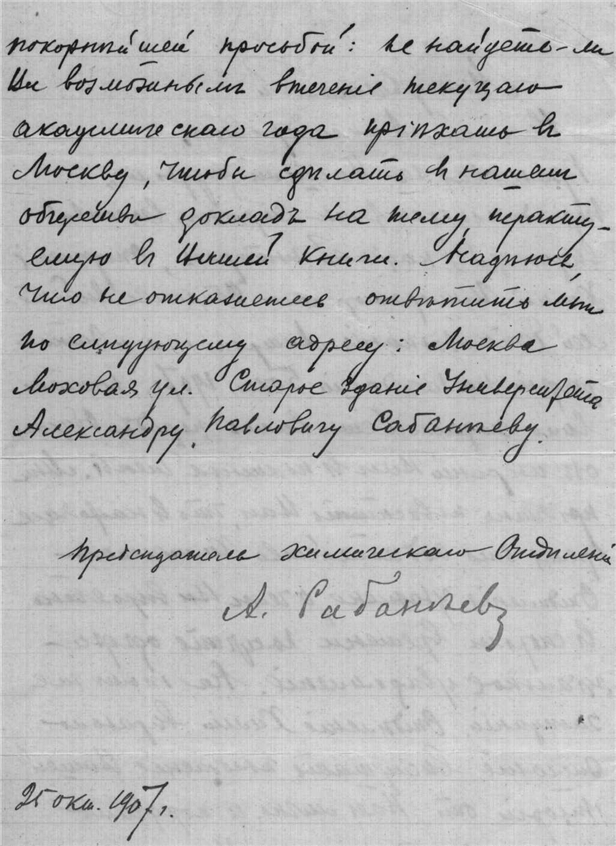 покорнѣйшей просьбой: не найдете-ли
Вы возможнымъ втеченіе текущаго
академическаго года пріѣхать въ
Москву, чтобы сдѣлать въ нашем
обществѣ докладъ на тему, тракту-
емую въ Вашей книги. Надѣюсь,
что не откажетесь отвѣтить мнѣ
по слѣдующему адресу: Москва
Моховая ул. Старое зданіе Университета
Александру Павловичу Сабанѣеву.
Предсѣдатель химическаго Отдѣленія
А. Сабанѣевъ
25 окт. 1907 г.